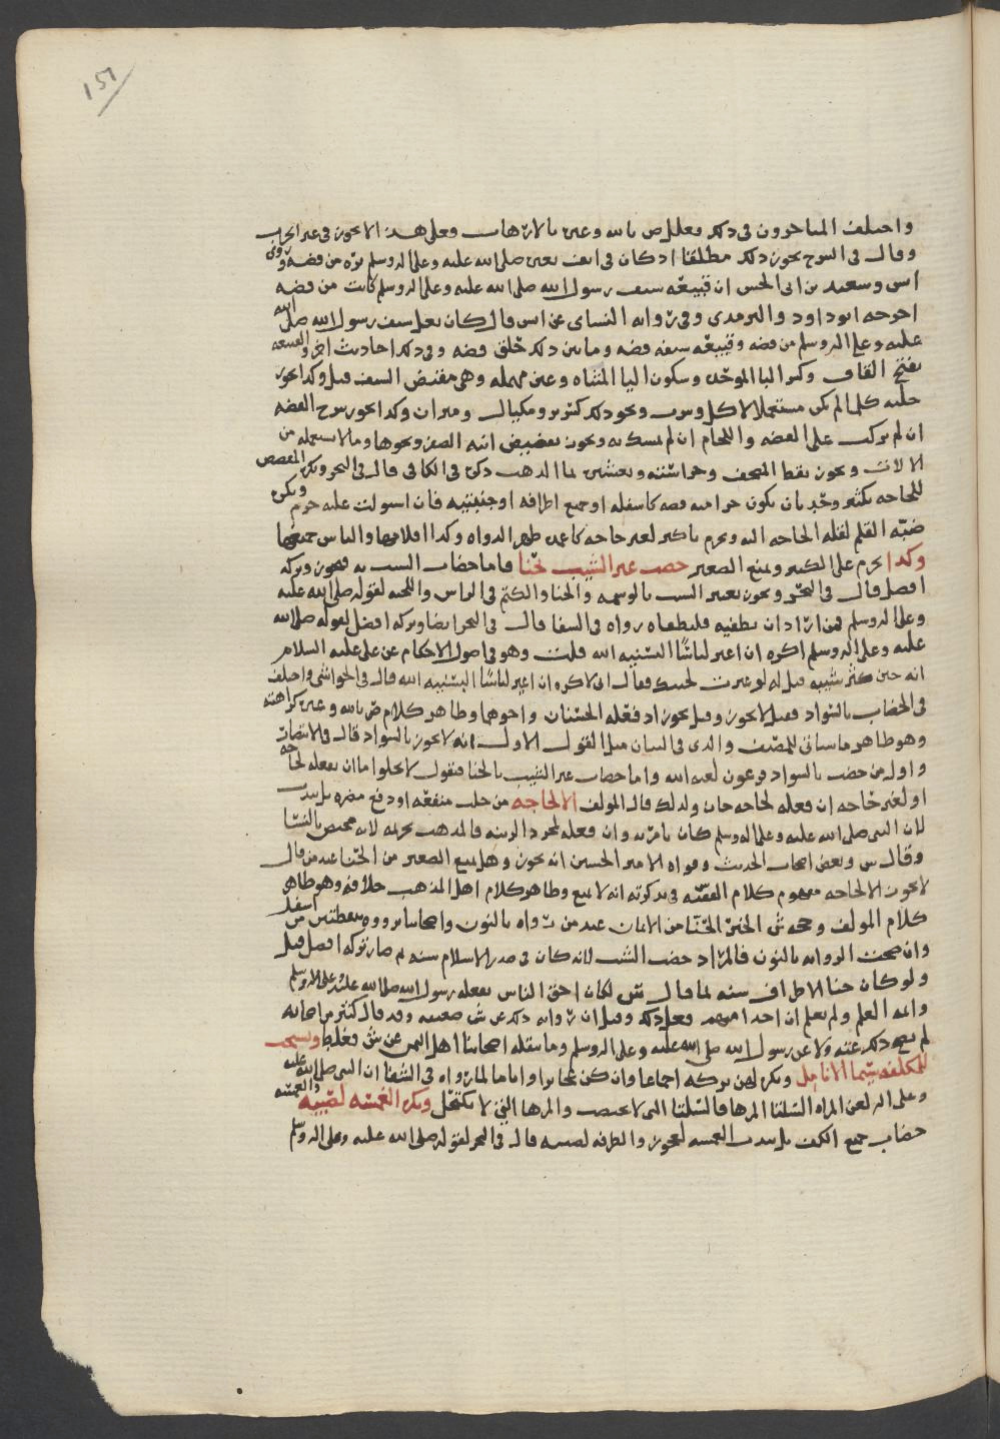 151
واختلف المتاخرون في ذلك فعلل ص بالله وغيره بالارهاب وفعلى هذا لا يجوز في غير الحرب
وقال في الشرح يجوز ذلك مطلقا اذ كان في انف بعيره صلى الله عليه وعلى اله وسلم بره من فضة وروى
انس وسعيد بن ابي الحسن ان قبيعه سيف رسول الله صلى الله عليه وعلى اله وسلم كانت من فضه
اخرجه ابو داود والترمذي وفي روايه النساي عن انس قال كان نعل سيف رسول الله صلى الله
عليه وعلى اله وسلم من فضه وقبيعه سيفه فضه وما بين ذلك حلق فضه وفي ذلك احاديث اخر والقبيعه
بفتح القاف وكسر البا الموحده وسكون اليا المثناه وعين مهمله وهي مقبض السيف قيل وكذا يجوز
حليه كلما لم يكن مستعملا لاكل وشرب ونحو ذلك كتور ومكيال وميزان وكذا يجوز سرج الفضه
ان لم يركب على الفضه واللجام ان لم يمسك به ويجوز تفضيض انيه الصفر ونحوها وما لا يستعمله من
الالات ويجوز نقط المصحف وحواشيه وتعشيره بما الذهب ذكره في الكافي قال في البحر ويكره المفصص
للحاجه يكثير وحد بان يكون جزا منه فضه كاسفله او جميع اطرافه او جنبتيه فان استولت عليه حرم ويكره
ضبه القلم لقله الحاجه اليه ويحرم باكثر لغير حاجه كاعمده ظهر الدواه وكذا اقلامها والباس جميعها
وكذا يحرم على الكبير ويمنع الصغير خضب غير الشيب بحنا فاما خضاب الشيب به فيجوز وتركه
افضل قال في البحر ويجوز تغيير الشيب بالوسمه والحنا والكتم في الراس واللحيه لقوله صلى الله عليه
وعلى اله وسلم فمن اراد ان يطفيه فليطفاه رواه في الشفا قال في البحر ايضا وتركه افضل لقوله صلى الله
عليه وعلى اله وسلم اكره ان اغير لباسا البسنيه الله قلت وهو في اصول الاحكام عن علي عليه السلام
انه حين كثر شيبه قيل له لو غيرت لحيتك فقال اني لاكره ان اغير لباسا البسنيه الله قال في الحواشي واختلف
في الخضاب بالسواد فقيل لا يجوز وقيل يجوز اذ فعله الحسنان واخوهما وظاهر كلام ص بالله وغيره كراهته
وهو ظاهر ما سياتي للمصنف والذي في البيان مثل القول الاول انه لا يجوز بالسواد قال في الانتصار
واول من خضب بالسواد فرعون لعنه الله واما خضاب غير الشيب بالحنا فنقول لا يخلوا ما ان يفعله لحاجه
او لغير حاجه ان فعله لحاجه جاز ولذلك قال المولف الا لحاجه من جلب منفعه او دفع مضره بل يندب
لان النبي صلى الله عليه وعلى اله وسلم كان يامر به وان فعله لمجرد الزينه فالمذهب تحريمه لانه مختص بالنسا
وقال ش وبعض اصحاب الحديث وقواه الامير الحسين انه يجوز وهل يمنع الصغير من الحنا عند من قال
لا يجوز الا لحاجه مفهوم كلام الفقيه ف في تذكرته انه لا يمنع وظاهر كلام اهل المذهب خلافه وهو ظاهر
كلام المولف وحجه ش الخبر الحنا من الايمان عند من رواه بالنون واصحابنا يرووه بنقطتين من اسفل
وان صحت الروايه بالنون فالمراد خضب الشيب لانه كان في صدر الاسلام سنه ثم صار تركه افضل قيل
ولو كان حنا الاطراف سنه لما قال ش لكان احق الناس بفعله رسول الله صلى الله عليه وعلى اله وسلم
وايمه العلم ولم يعلم ان احدا منهم فعل ذلك وقيل ان روايه ذلك عن ش ضعيفه وقد قال كثير من اصحابه
لم يصح ذلك عنه ولا عن رسول الله صلى الله عليه وعلى اله وسلم وما نقله اصحابنا اهل اليمن عن ش فغلط ويستحب
للمكلفه سيما الانامل ويكره لهن تركه اجماعا وان كن عجايزا وايامى لما رواه في الشفا ان النبي صلى الله عليه
وعلى اله لعن المراه السلتا المرها فالسلتا التي لا تختضب والمرها التي لا تكتحل ويكره الغمسه لصبيه والغمسه
خضاب جميع الكف بل يندب الغمسه لعجوز والطرفه لصبيه قال في البحر لقوله صلى الله عليه وعلى اله وسلم